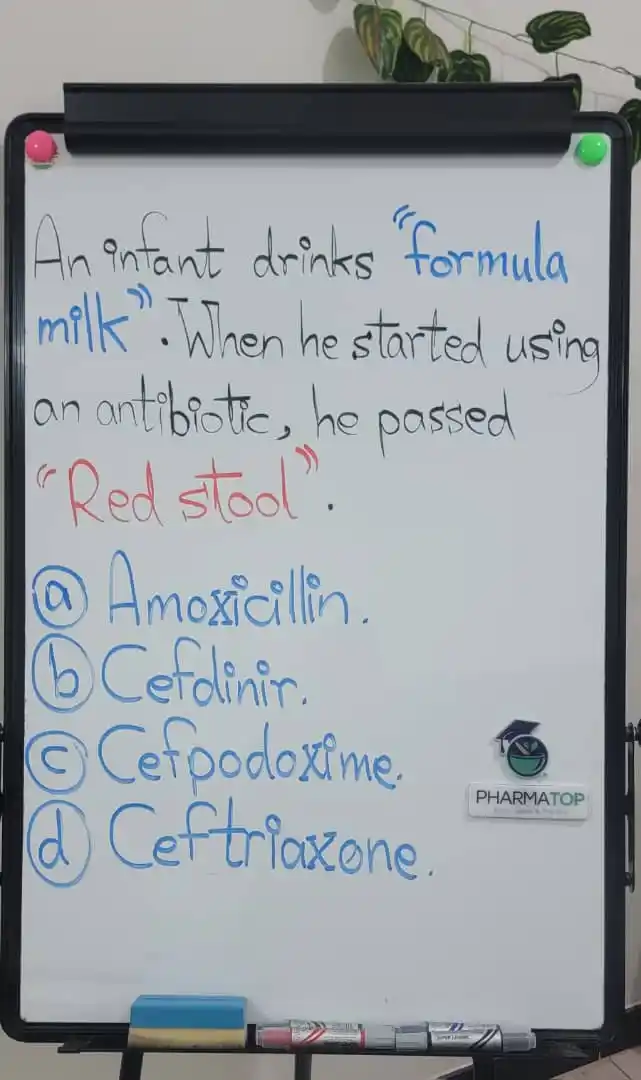 An infant drinks "formula
milk". When he started using
an antibiotic, he passed
"Red stool".
a Amoxicillin.
b Cefdinir.
c Cefpodoxime.
d Ceftriaxone.
PHARMATOP